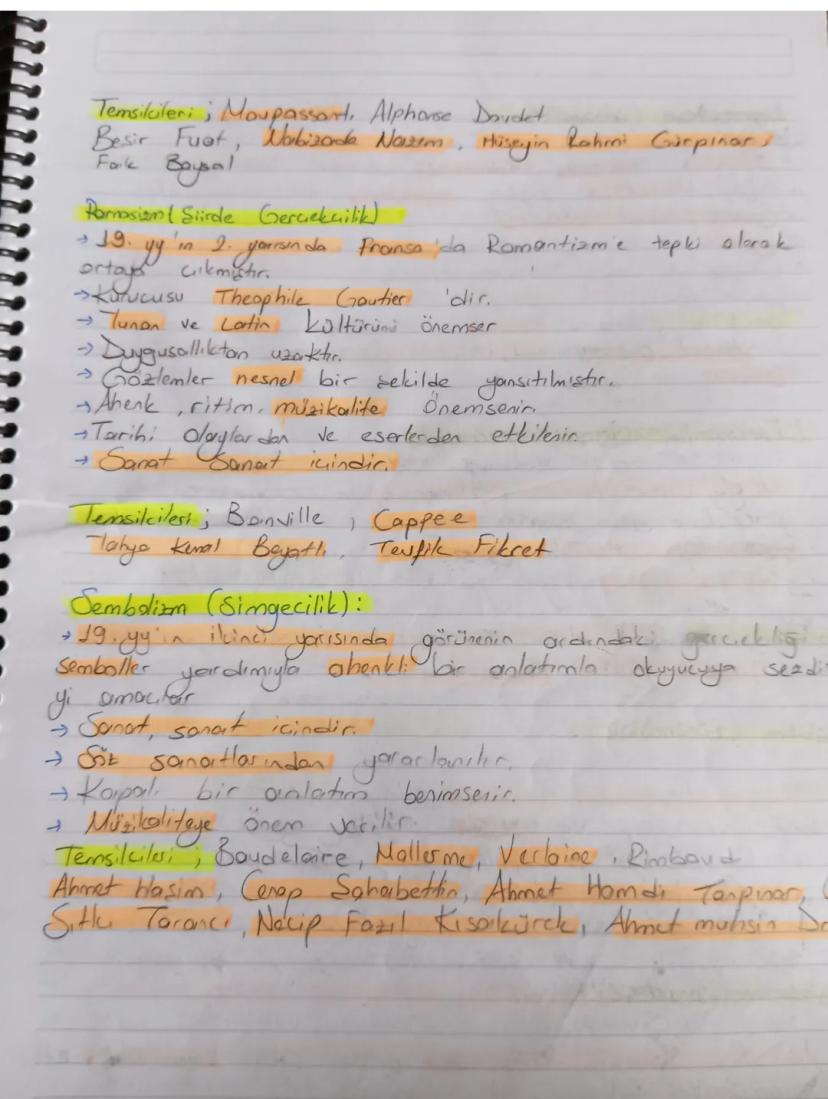 Temsilcileri ; Maupassant, Alphonse Daudet
Beşir Fuat, Nabizade Nazım, Hüseyin Rahmi Gürpınar,
Faik Baysal
Parnasizm (Şiirde Gerçekçilik)
→ 19. yy'ın 2. yarısında Fransa'da Romantizm'e tepki olarak
ortaya çıkmıştır.
→ Kurucusu Theophile Gautier 'dir.
→ Yunan ve Latin kültürünü önemser
→ Duygusallıktan uzaktır.
→ Gözlemler nesnel bir şekilde yansıtılmıştır.
→ Ahenk, ritim, müzikalite önemsenir.
→ Tarihi olaylardan ve eserlerden etkilenir.
→ Sanat Sanat içindir.
Temsilcileri ; Banville , Cappee
Yahya Kemal Beyatlı, Tevfik Fikret
Sembolizm (Simgecilik) :
→ 19. yy'ın ikinci yarısında görünenin ardındaki gerçekliği
semboller yardımıyla ahenkli bir anlatımla okuyucuya sezdi
yi amaçlar
→ Sanat, sanat içindir.
→ Söz sanatlarından yararlanılır.
→ Kapalı bir anlatım benimsenir.
→ Müzikaliteye önem verilir.
Temsilcileri ; Baudelaire, Mallerme, Verlaine, Rimbaud
Ahmet Haşim, Cenap Şahabettin, Ahmet Hamdi Tanpınar,
Sıtkı Tarancı, Necip Fazıl Kısakürek, Ahmet muhsin